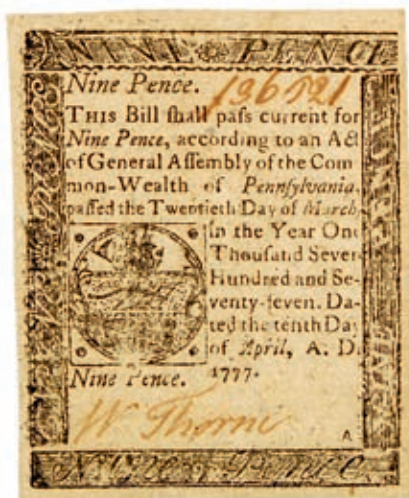 NINE PENCE
Nine Pence. 196521
THIS Bill ſhall paſs current for
Nine Pence, according to an Act
of General Aſſembly of the Com
mon-Wealth of Pennſylvania,
paſſed the Twentieth Day of March,
in the Year One
Thouſand Seven
Hundred and Se-
venty-ſeven. Da-
ted the tenth Day
of April, A. D.
Nine Pence. 1777.
W Thorne
A
Nine Pence